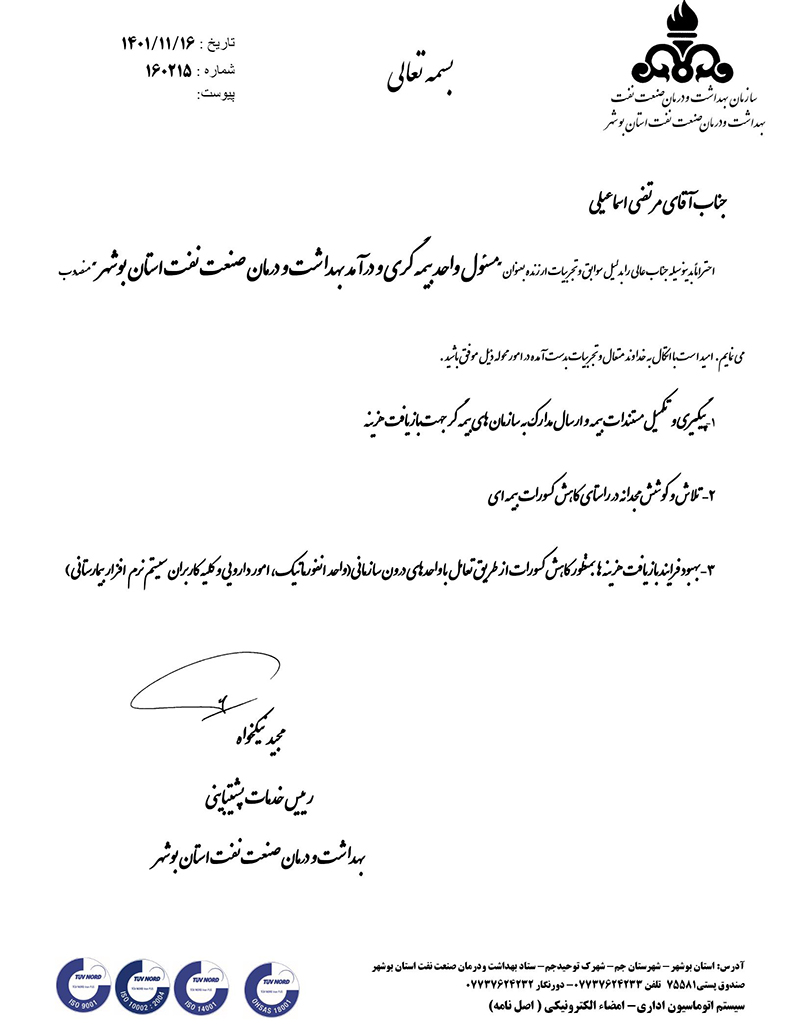 سازمان بهداشت و درمان صنعت نفت
بهداشت و درمان صنعت نفت استان بوشهر
بسمه تعالی
تاریخ : ۱۴۰۱/۱۱/۱۶
شماره : ۱۶۰۲۱۵
پیوست:
جناب آقای مرتضی اسماعیلی
احتراماً بدینوسیله جناب عالی را بدلیل سوابق و تجربیات ارزنده بعنوان "مسئول واحد بیمه گری و درآمد بهداشت و درمان صنعت نفت استان بوشهر" منصوب
می نمایم. امید است با اتکال به خداوند متعال و تجربیات بدست آمده در امور محوله ذیل موفق باشید.
۱-پیگیری و تکمیل مستندات بیمه و ارسال مدارک به سازمان های بیمه گر جهت بازیافت هزینه
۲- تلاش و کوشش مجدانه در راستای کاهش کسورات بیمه ای
۳-بهبود فرایند بازیافت هزینه ها بمنظور کاهش کسورات از طریق تعامل با واحدهای درون سازمانی(واحد انفورماتیک، امور دارویی و کلیه کاربران سیستم نرم افزار بیمارستانی)
مجید نیکخواه
رییس خدمات پشتیبانی
بهداشت و درمان صنعت نفت استان بوشهر
آدرس: استان بوشهر – شهرستان جم– شهرک توحیدجم– ستاد بهداشت ودرمان صنعت نفت استان بوشهر
صندوق پستی۷۵۵۸۱ تلفن ۰۷۷۳۷۶۲۴۲۳۳– دورنگار ۰۷۷۳۷۶۲۴۲۳۲
سیستم اتوماسیون اداری– امضاء الکترونیکی ( اصل نامه)
TUV NORD
ISO 9001
TUV NORD
ISO 10002 : 2004
TUV NORD
ISO 14001
TUV NORD
OHSAS 18001